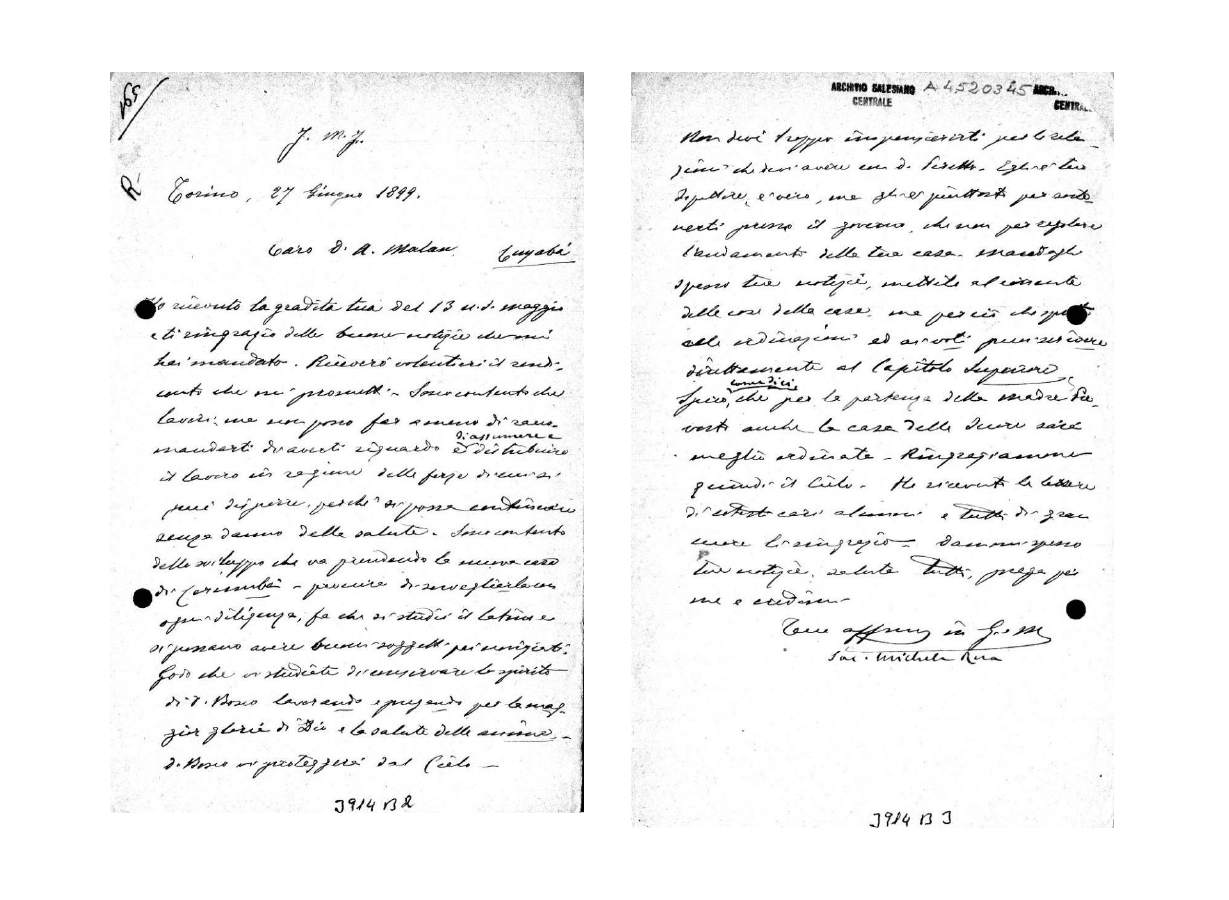 165
R-
J. M. J.
Torino, 27 Giugno 1899.
Caro D. A. Malan. Cuyabá
Ho ricevuto la gradita tua del 13 u.s. maggio
e ti ringrazio delle buone notizie che mi
hai mandato. Riceverò volentieri il rendi-
conto che mi prometti. - Sono contento che
lavori; ma non posso far a meno di racco-
mandarti di averti riguardo
di assumere e
e distribuire
il lavoro in ragione delle forze di cui si
può disporre, perché si possa continuare
senza danno della salute. - Sono contento
dello sviluppo che va prendendo la nuova casa
di Corumbà - procura di
ogni diligenza, fa che si studii il latino e
si possano avere buoni soggetti
Godo che vi studiate di conservare lo spirito
di D. Bosco lavorando e pregando per la mag-
gior gloria di Dio e la salute delle anime. -
D. Bosco vi proteggerà dal Cielo -
J914 B 2
ARCHIVIO SALESIANO
CENTRALE
A4520345
Non devi troppo impensierirti per le rela-
zioni che devi avere con D. Peretto. Egli è tuo
Ispettore, è vero, ma gli è piuttosto per soste-
nerti presso il governo, che non per regolare
l'andamento della tua casa. mandagli
spesso tue notizie, mettilo al corrente
delle cose della casa, ma per ciò che
alle ordinazioni ed ai voti puoi scrivere
direttamente al Capitolo Superiore
come dici
Spero, che per la partenza della madre
anche la casa delle Suore sarà
meglio ordinata - Ringraziamone
quindi il Cielo. - Ho ricevuto le lettere
di cotesti cari alunni e tutti di gran
cuore li ringrazio - Dammi spesso
tue notizie, saluta tutti, prega per
me e credimi
Tuo affmo in G. e M.
Sac. Michele Rua
J914 B 3